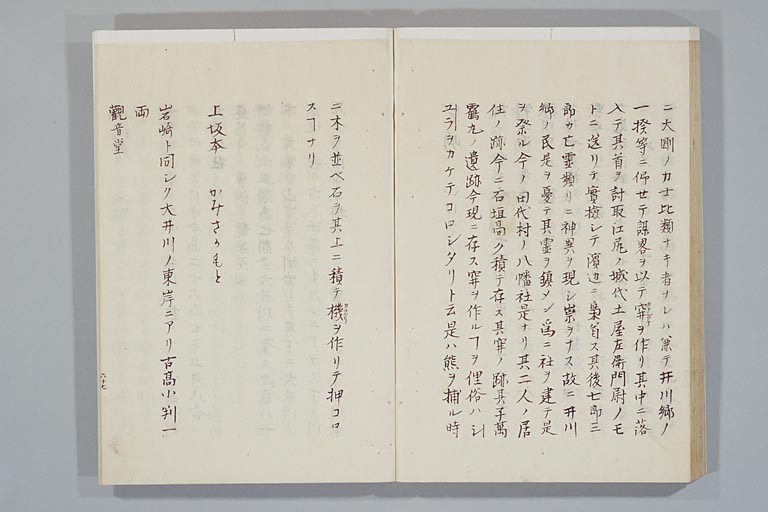 ニ大剛ノ力士比類ナキ者ヲレハ兼テ井川郷ノ
一揆等ニ仰セテ謀畧ヲ以テ穽ヲ作リ其中ニ落
入テ其首ヲ討取江尻ノ城代土屋左衛門尉ノモ
トニ送リテ實撿シテ濱辺ニ梟首ス其後七郎三
郎カ亡霊頻リニ神異ヲ現シ祟ヲナス故ニ井川
郷ノ民是ヲ憂テ其霊ヲ鎮メン為ニ社ヲ建テ是
ヲ祭ル今ノ田代村ノ八幡社是ナリ其二人ノ居
住ノ跡今ニ石垣高ク積テ存ス其穽ノ跡其子萬
鶴丸ノ遺跡今現ニ存ス穽ヲ作ルヿヲ俚俗ハシ
ユヲヲカケテコロシタリト云是ハ熊ヲ捕ル時
ニ木ヲ並ベ石ヲ其上ニ積テ機ヲ作リテ押コロ
スヿナリ
上坂本 かみさかもと
岩崎ト同シク大井川ノ東岸ニアリ古高小判一
両
觀音堂